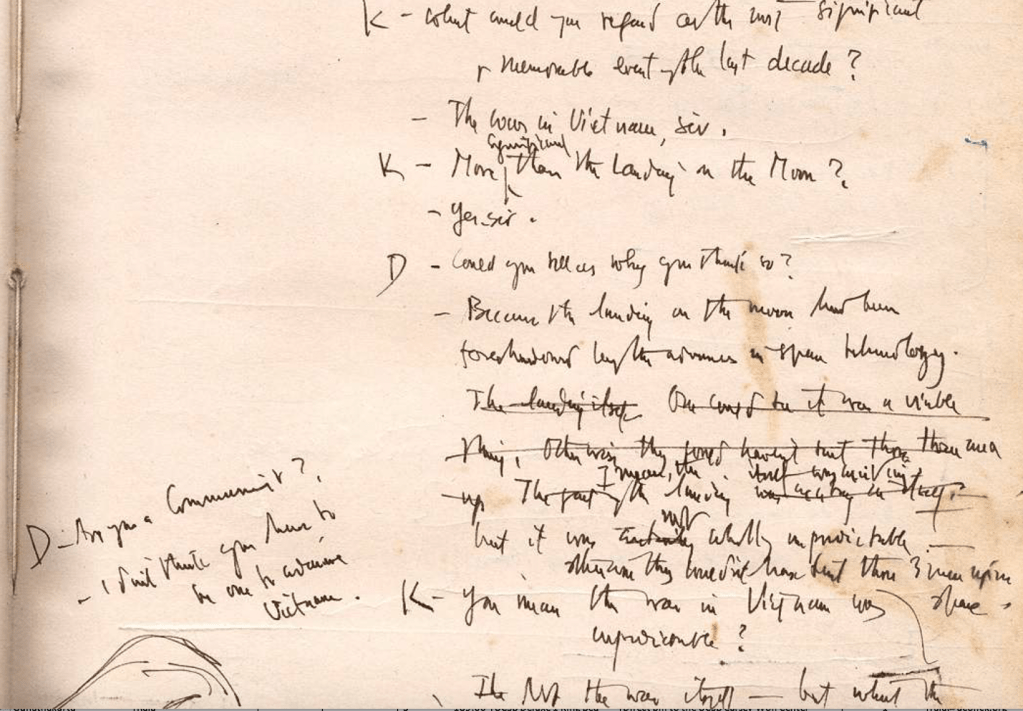 K - What would you regard as the most significant
& memorable event of the last decade?
- The war in Vietnam, sir.
significant
K - More than the landing on the Moon?
- Yes, sir.
D - Could you tell us why you think so?
- Because the landing on the moon had been
foreshadowed by the advances in space technology.
The landing itself One could say it was a viable
thing, otherwise they would haven't sent those three men
I mean, the
up The landing
not
but it was wholly unpredictable.
otherwise they wouldn't have sent those 3 men up in
space.
D - Are you a Communist?
- I don't think you have to
be one to admire
Vietnam.
K - You mean the war in Vietnam was
unpredictable?
Not the war itself — but what the